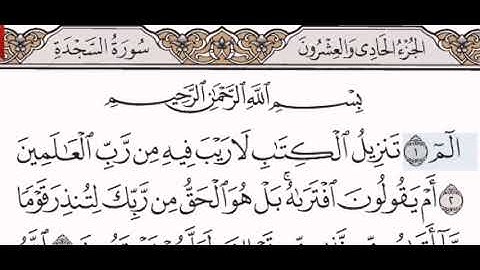 الجُزْءُ الحَادِى وَالعِشْرُونَ
سُورَةُ السَّجْدَةِ
بِسْمِ اللَّهِ الرَّحْمَٰنِ الرَّحِيمِ
الٓمٓ ١ تَنزِيلُ الْكِتَابِ لَا رَيْبَ فِيهِ مِن رَّبِّ الْعَالَمِينَ
٢ أَمْ يَقُولُونَ افْتَرَىٰهُ ۚ بَلْ هُوَ الْحَقُّ مِن رَّبِّكَ لِتُنذِرَ قَوْمًا